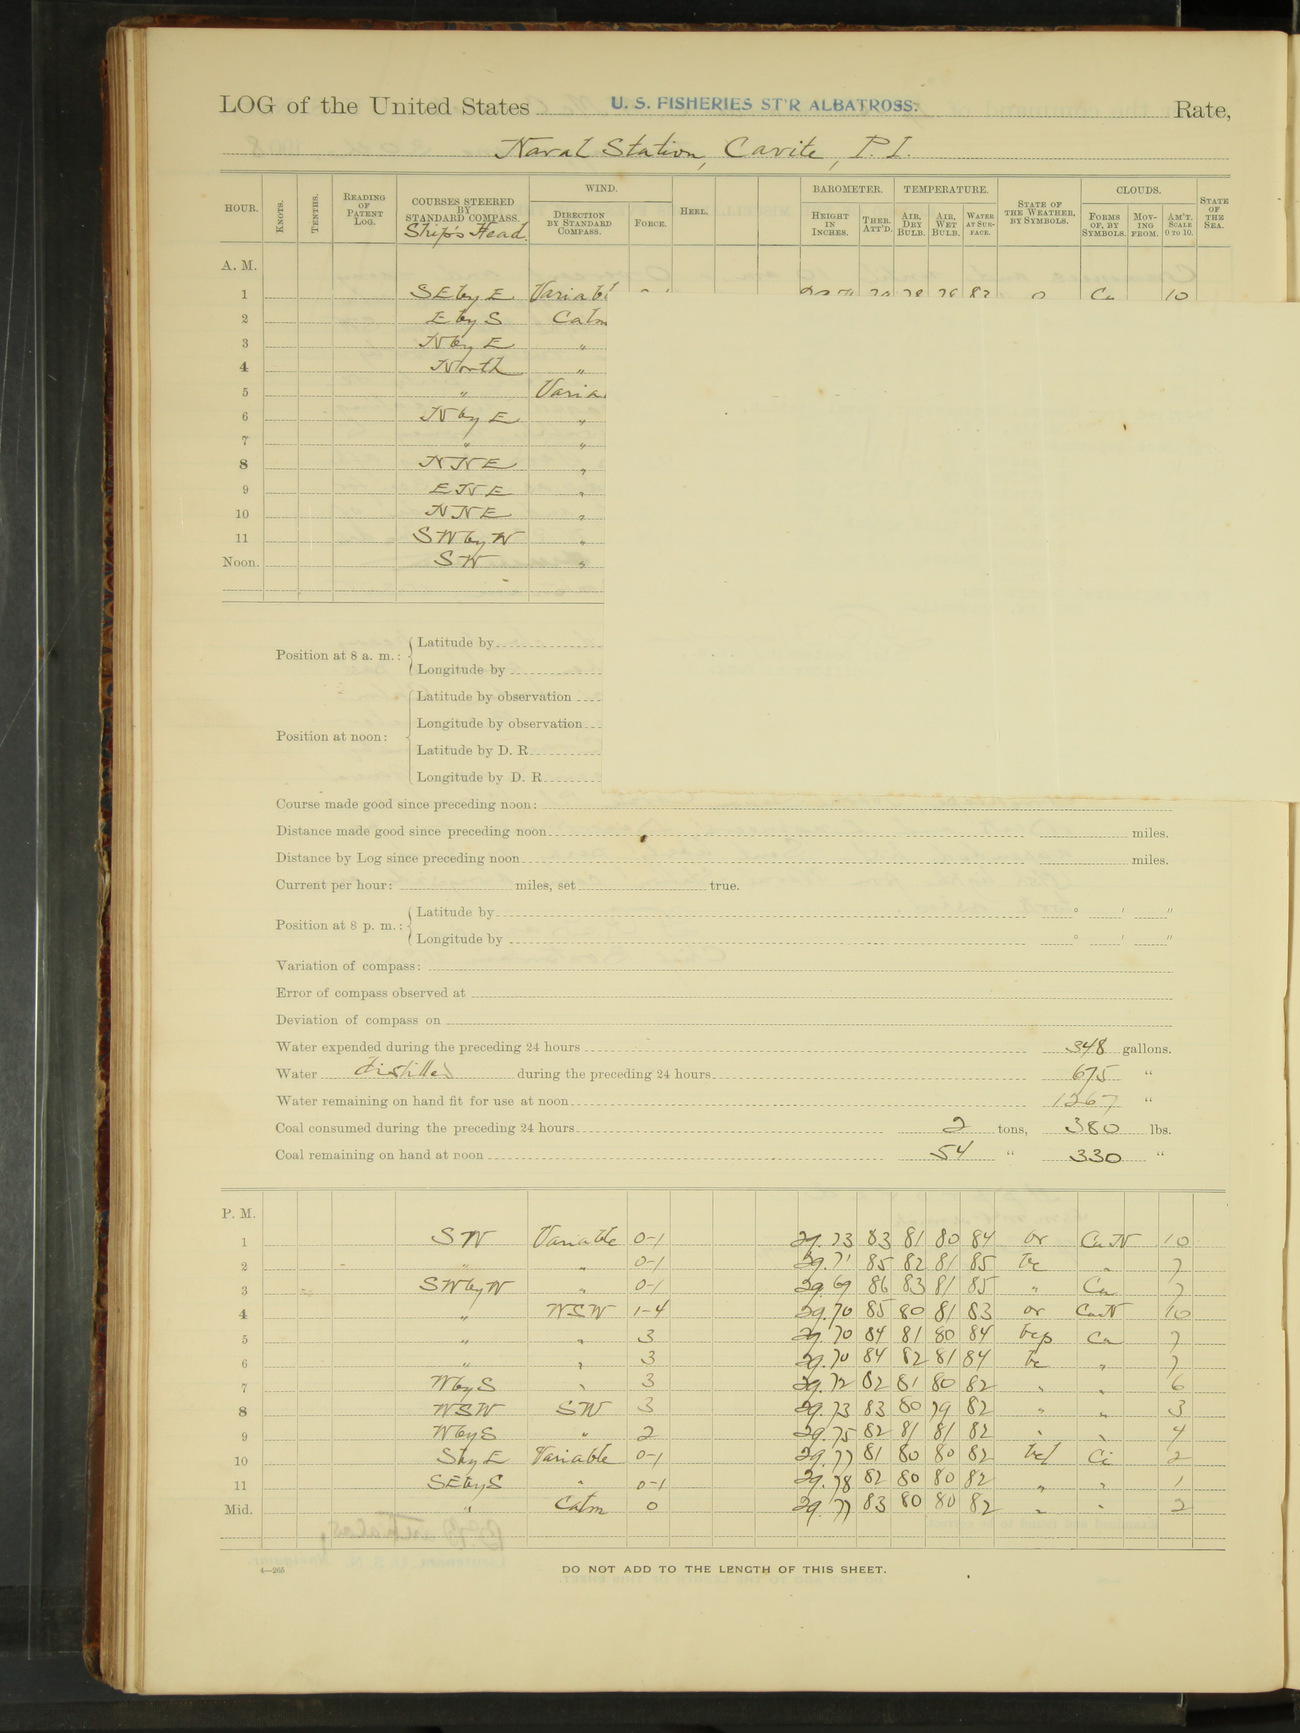 LOG of the United States U. S. FISHERIES ST'R ALBATROSS. Rate,
Naval Station, Cavite, P.I.
HOUR. KNOTS. TENTHS. READING OF PATENT LOG. COURSES STEERED BY STANDARD COMPASS. Ship's Head. WIND. DIRECTION BY STANDARD COMPASS. FORCE. HEEL. BAROMETER. HEIGHT IN INCHES. THER. ATT'D. TEMPERATURE. AIR, DRY BULB. AIR, WET BULB. WATER AT SURFACE. STATE OF THE WEATHER, BY SYMBOLS. CLOUDS. FORMS OF, BY SYMBOLS. MOVING FROM. AM'T. SCALE 0 TO 10. STATE OF THE SEA.
A. M.
1 SE by E Variabl 82 Cu 10
2 E by S Calm
3 N by E "
4 North "
5 " Varia
6 N by E "
7 " "
8 NNE "
9 ENE "
10 NNE "
11 SW by W "
Noon. SW "
Position at 8 a. m.: Latitude by
Longitude by
Position at noon: Latitude by observation
Longitude by observation
Latitude by D. R.
Longitude by D. R.
Course made good since preceding noon:
Distance made good since preceding noon miles.
Distance by Log since preceding noon miles.
Current per hour: miles, set true.
Position at 8 p. m.: Latitude by ° ′ ″
Longitude by ° ′ ″
Variation of compass:
Error of compass observed at
Deviation of compass on
Water expended during the preceding 24 hours 348 gallons.
Water distilled during the preceding 24 hours 675 "
Water remaining on hand fit for use at noon 1267 "
Coal consumed during the preceding 24 hours 2 tons, 380 lbs.
Coal remaining on hand at noon 54 " 330 "
P. M.
1 SW Variable 0-1 29.73 83 81 80 84 or CuN 10
2 " " 0-1 29.71 85 82 81 85 bc " 7
3 SW by W " 0-1 29.69 86 83 81 85 " Cu 7
4 " WSW 1-4 29.70 85 80 81 83 or CuN 10
5 " " 3 29.70 84 81 80 84 bcp Cu 7
6 " " 3 29.70 84 82 81 84 bc " 7
7 W by S " 3 29.72 82 81 80 82 " " 6
8 WSW SW 3 29.73 83 80 79 82 " " 3
9 W by S " 2 29.75 82 81 81 82 " " 4
10 S by E Variable 0-1 29.77 81 80 80 82 bcl Ci 2
11 SE by S " 0-1 29.78 82 80 80 82 " " 1
Mid. " Calm 0 29.77 83 80 80 82 " " 2
4—265
DO NOT ADD TO THE LENGTH OF THIS SHEET.